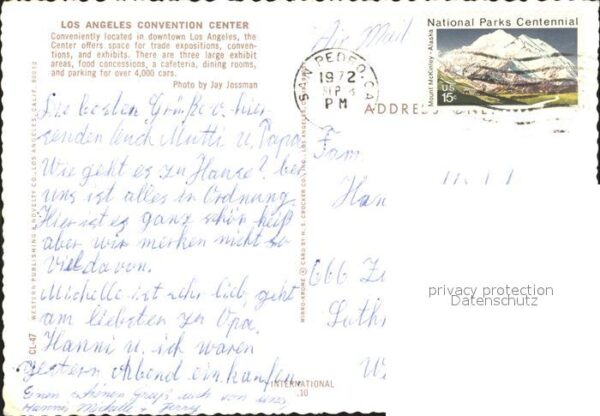 LOS ANGELES CONVENTION CENTER
Conveniently located in downtown Los Angeles, the
Center offers space for trade expositions, conven-
tions, and exhibits. There are three large exhibit
areas, food concessions, a cafeteria, dining rooms,
and parking for over 4,000 cars.
Photo by Jay Jossman
Air Mail
SAN PEDRO, CA
1972
SEP
PM
National Parks Centennial
Mount McKinley - Alaska
US
15c
ADDRESS
Die besten Grüße v. hier
senden Euch Mutti u. Papa
Wie geht es zu Hause? bei
uns ist alles in Ordnung.
Hier ist es ganz schön heiß
aber wir merken nicht so
viel davon.
Michelle ist sehr lieb, geht
am liebsten zu Opa.
Hanni u. ich waren
gestern Abend einkaufen.
Einen schönen Gruß auch von uns
Hanni Michelle + Jerry
Fam
666
WESTERN PUBLISHING & NOVELTY CO., LOS ANGELES, CALIF. 90012
CL-47
MIRRO-KROME ® CARD BY H. S. CROCKER CO., INC., LOS ANGELES
INTERNATIONAL
10
privacy protection
Datenschutz